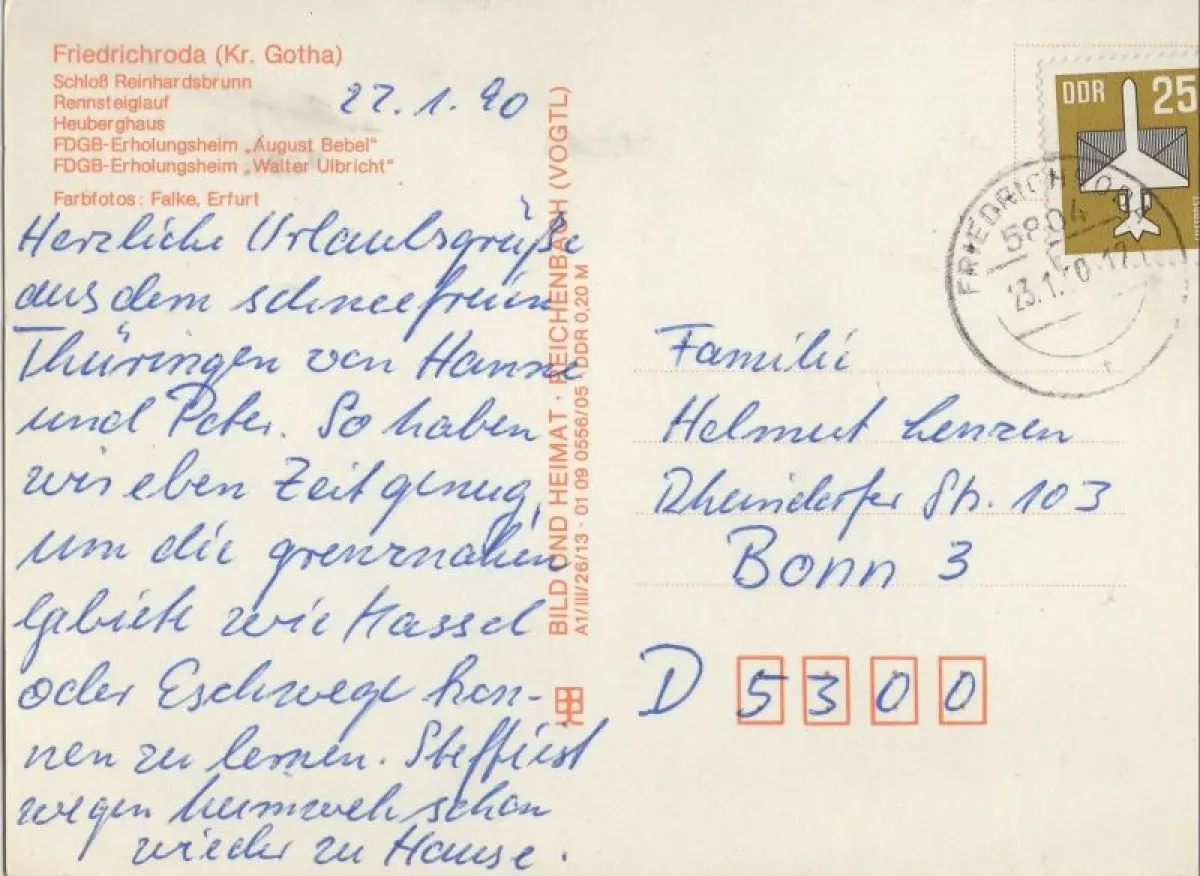 Friedrichroda (Kr. Gotha)
Schloß Reinhardsbrunn
Rennsteiglauf
Heuberghaus
FDGB-Erholungsheim „August Bebel"
FDGB-Erholungsheim „Walter Ulbricht"
Farbfotos: Falke, Erfurt
22.1.90
Herzliche Urlaubsgrüße
aus dem schneefreien
Thüringen von Hanne
und Peter. So haben
wir eben Zeit genug,
um die grenznahen
Gebiete wie Kassel
oder Eschwege ken-
nen zu lernen. Steffi ist
wegen Heimweh schon
wieder zu Hause.
BILD UND HEIMAT · REICHENBACH (VOGTL)
A1/III/26/13 · 01 09 0556/05 DDR 0,20 M
DDR 25
FRIEDRICHRODA
5804
23.1.90-12
Familie
Helmut Lenzen
Rheindorfer Str. 103
Bonn 3
D 5300